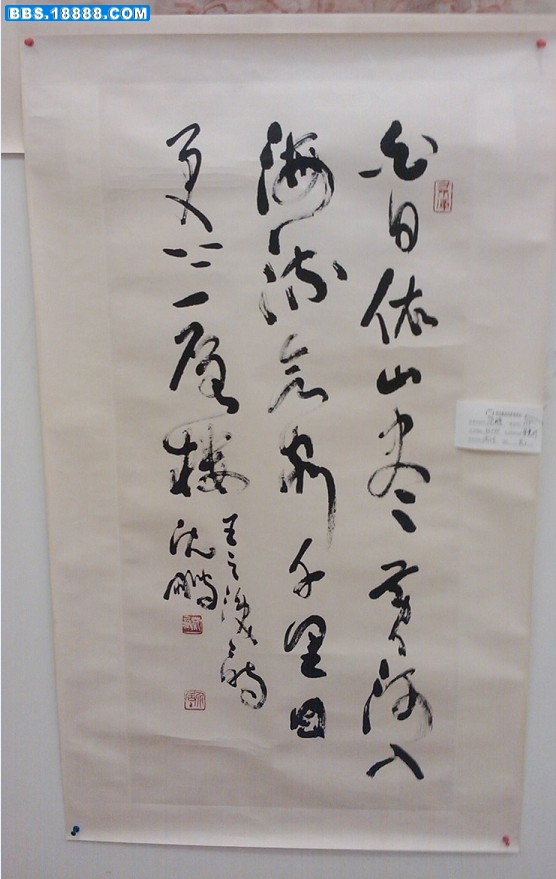 BBS.18888.COM
白日依山尽黄河入
海流欲穷千里目
更上一层楼
王之涣诗
沈鹏